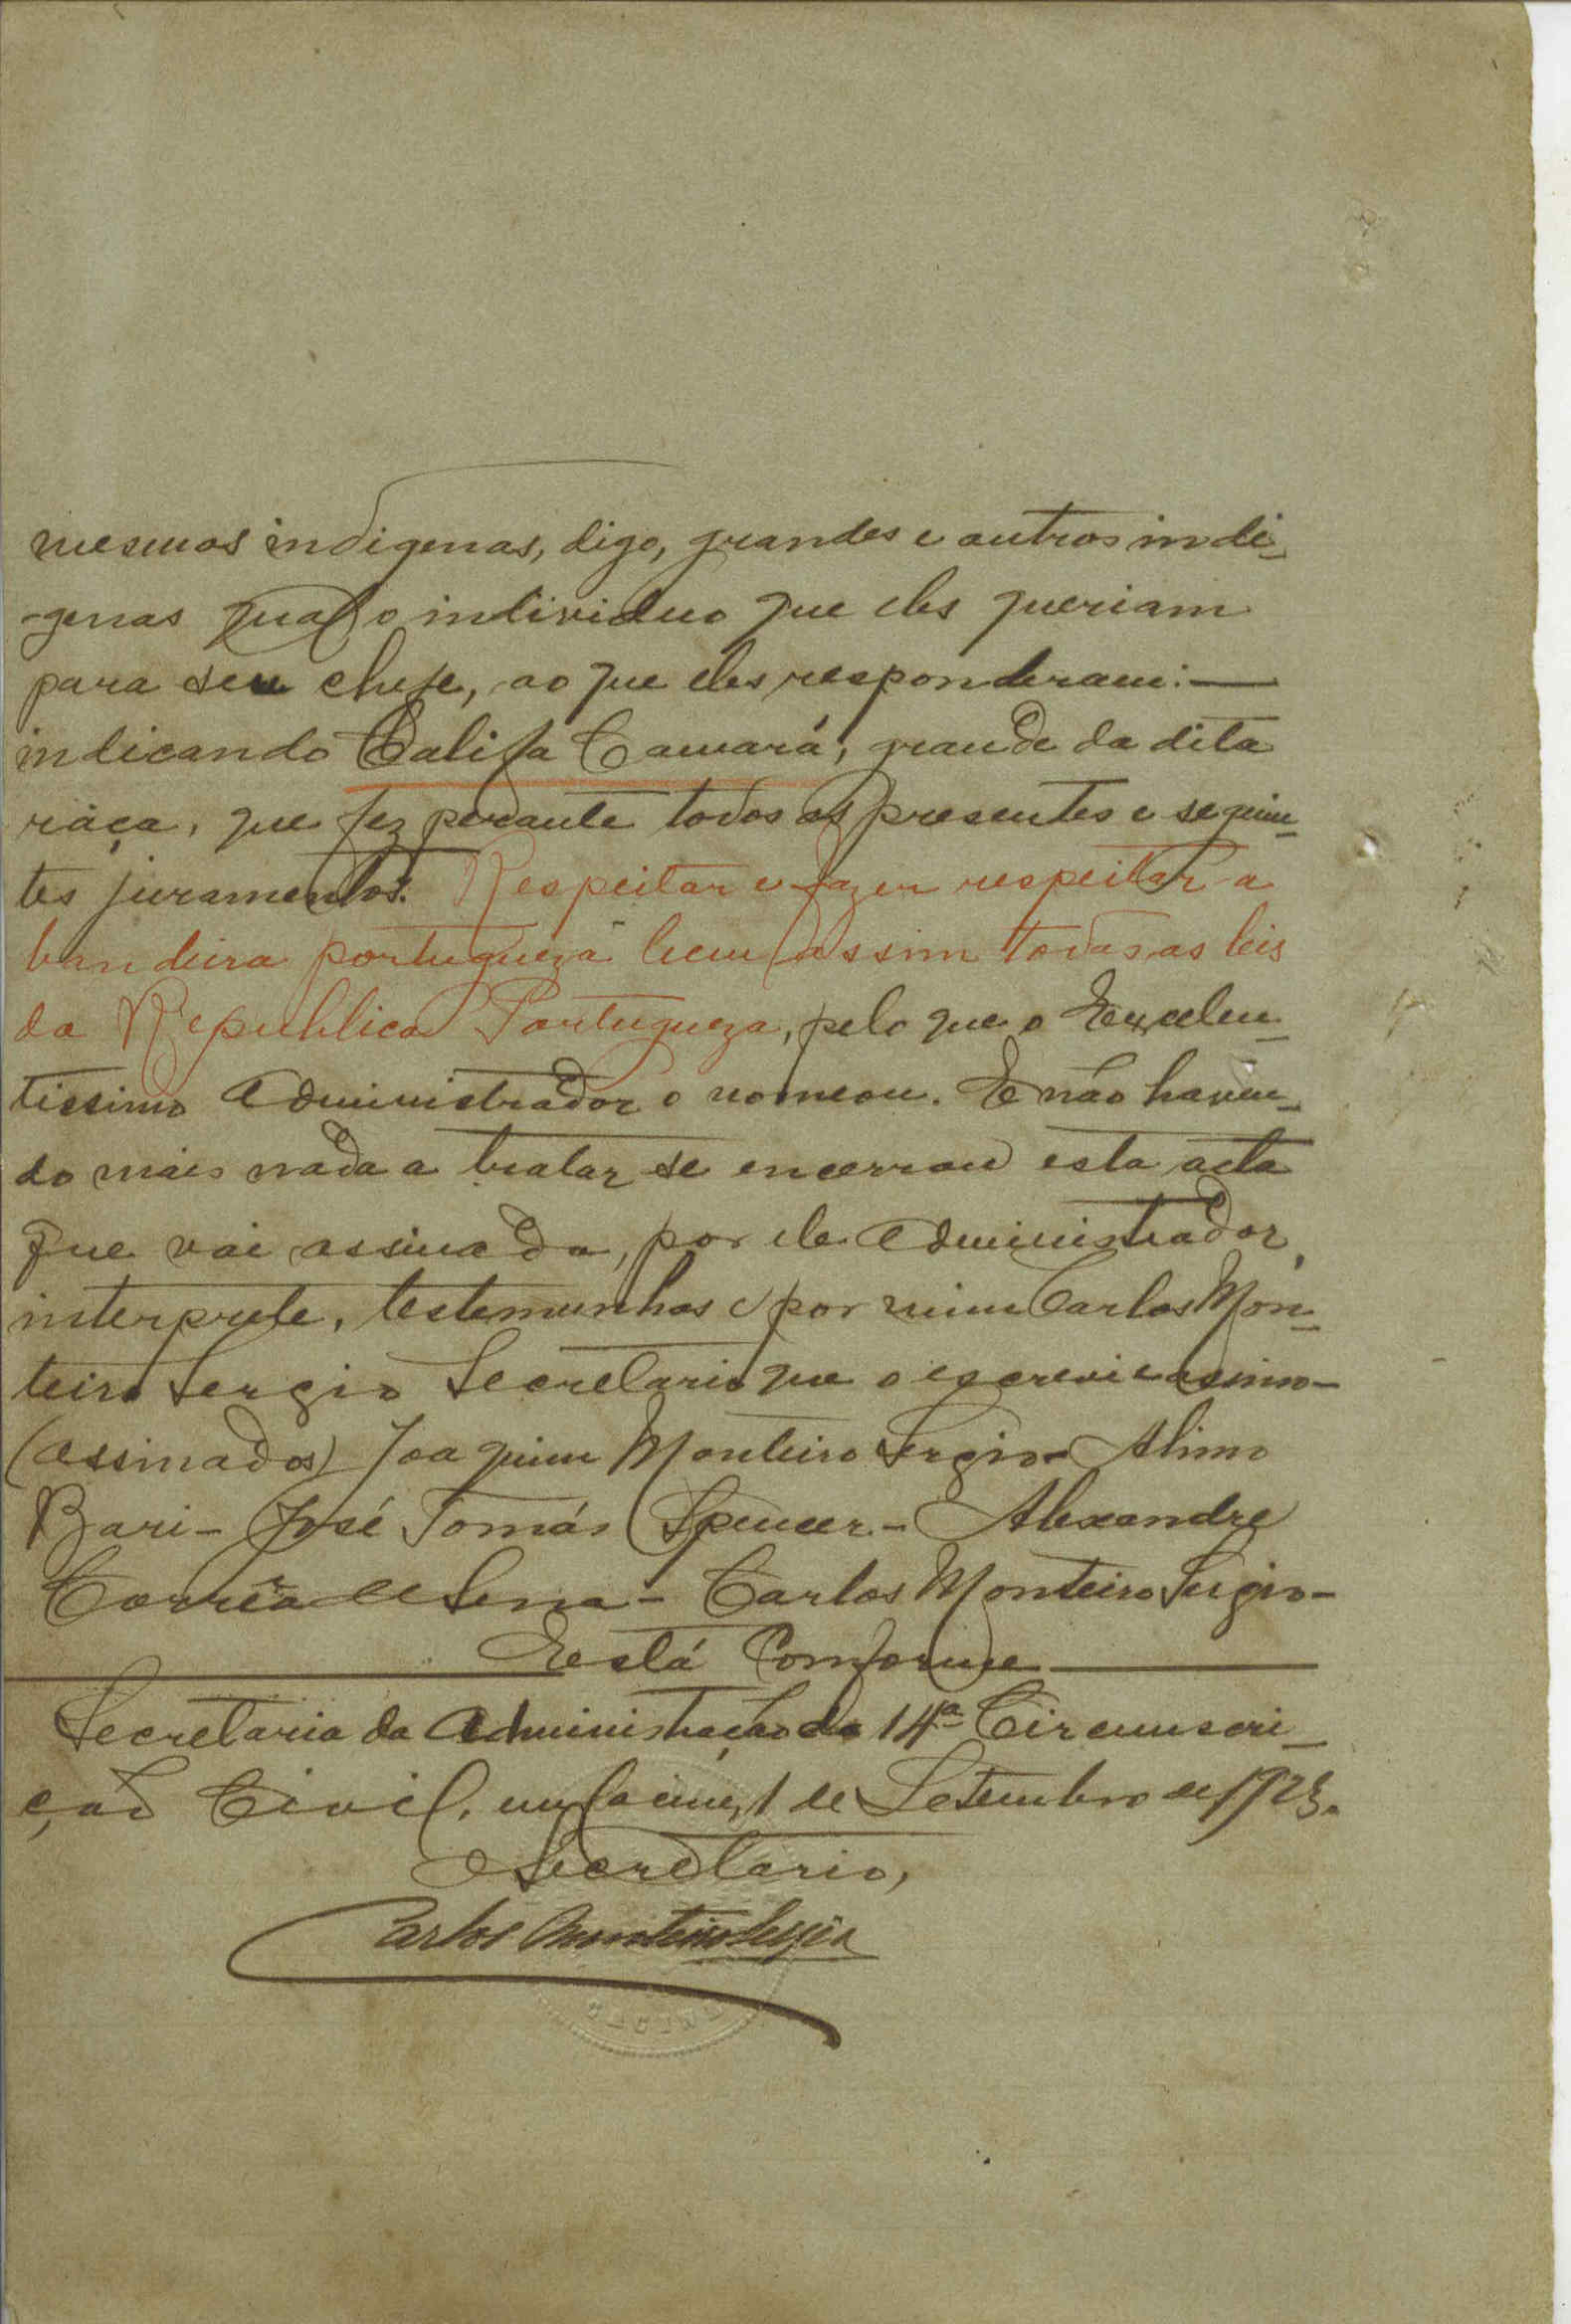 mesmos indigenas, digo, grandes e outros indi-
-genas qual o individuo que eles queriam
para seu chefe, ao que eles responderam:—
indicando Califa Camará, grande da dita
ráça, que fez perante todos os presentes e seguin-
tes juramentos: Respeitar e fazer respeitar a
bandeira portugueza bem assim todas as leis
da Republica Portugueza, pelo que o Excelen-
tissimo Administrador o nomeou. E não haven-
do mais nada a tratar se encerrou esta acta
que vai assinada, por ele Administrador,
interprete, testemunhas e por mim Carlos Mon-
teiro Sergio Secretario que o escrevi e assino—
(assinados) Joaquim Monteiro Sergio— Alimo
Bari— José Tomás Spencer— Alexandre
Corrêa de Sena— Carlos Monteiro Sergio—
Está Conforme
Secretaria da Administração da 14ª Circumscri-
ção Civil, em Cacine, 1 de Setembro de 1923.
O Secretario,
Carlos Monteiro Sergio
CACINE